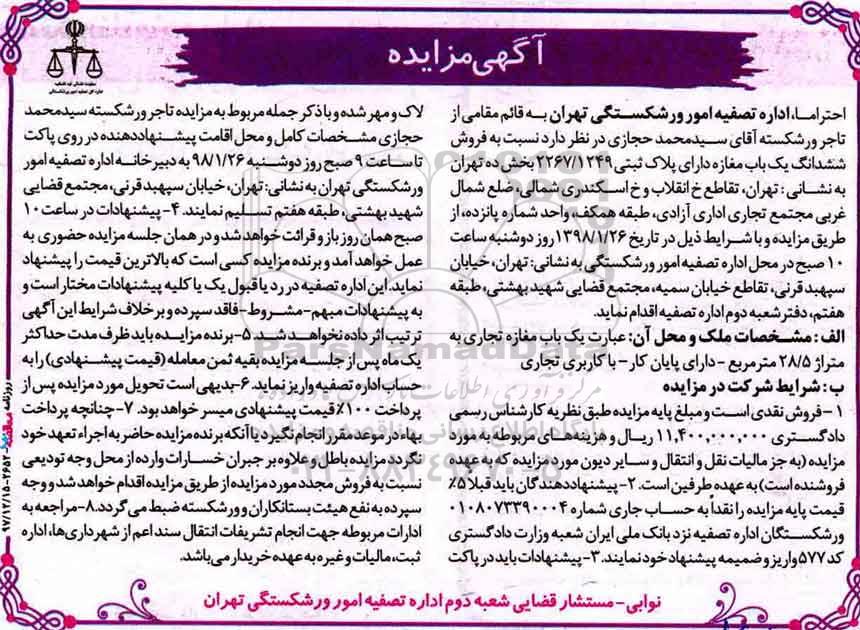 آگهی مزایده
احتراما، اداره تصفیه امور ورشکستگی تهران به قائم مقامی از
تاجر ورشکسته آقای سیدمحمد حجازی در نظر دارد نسبت به فروش
ششدانگ یک باب مغازه دارای پلاک ثبتی ۲۲۶۷/۱۲۴۹ بخش ده تهران
به نشانی: تهران، تقاطع خ انقلاب و خ اسکندری شمالی، ضلع شمال
غربی مجتمع تجاری اداری آزادی، طبقه همکف، واحد شماره پانزده، از
طریق مزایده و با شرایط ذیل در تاریخ ۱۳۹۸/۱/۲۶ روز دوشنبه ساعت
۱۰ صبح در محل اداره تصفیه امور ورشکستگی به نشانی: تهران، خیابان
سپهبد قرنی، تقاطع خیابان سمیه، مجتمع قضایی شهید بهشتی، طبقه
هفتم، دفتر شعبه دوم اداره تصفیه اقدام نماید.
الف: مشخصات ملک و محل آن: عبارت یک باب مغازه تجاری به
متراژ ۲۸/۵ مترمربع -دارای پایان کار- با کاربری تجاری
ب: شرایط شرکت در مزایده
۱- فروش نقدی است و مبلغ پایه مزایده طبق نظریه کارشناس رسمی
دادگستری ۱۱,۴۰۰,۰۰۰,۰۰۰ ریال و هزینه‌های مربوطه به مورد
مزایده (به جز مالیات نقل و انتقال و سایر دیون مورد مزایده که به عهده
فروشنده است) به عهده طرفین است. ۲- پیشنهاددهندگان باید قبلا ۵٪
قیمت پایه مزایده را نقداً به حساب جاری شماره ۰۱۰۸۰۷۳۳۹۰۰۰۴
ورشکستگان اداره تصفیه نزد بانک ملی ایران شعبه وزارت دادگستری
کد ۵۷۷ واریز و ضمیمه پیشنهاد خود نمایند. ۳- پیشنهادات باید در پاکت
لاک و مهر شده و با ذکر جمله مربوط به مزایده تاجر ورشکسته سیدمحمد
حجازی مشخصات کامل و محل اقامت پیشنهاددهنده در روی پاکت
تا ساعت ۹ صبح روز دوشنبه ۹۸/۱/۲۶ به دبیرخانه اداره تصفیه امور
ورشکستگی تهران به نشانی: تهران، خیابان سپهبد قرنی، مجتمع قضایی
شهید بهشتی، طبقه هفتم تسلیم نمایند. ۴- پیشنهادات در ساعت ۱۰
صبح همان روز باز و قرائت خواهد شد و در همان جلسه مزایده حضوری به
عمل خواهد آمد و برنده مزایده کسی است که بالاترین قیمت را پیشنهاد
نماید. این اداره تصفیه در رد یا قبول یک یا کلیه پیشنهادات مختار است و
به پیشنهادات مبهم-مشروط-فاقد سپرده و برخلاف شرایط این آگهی
ترتیب اثر داده نخواهد شد. ۵- برنده مزایده باید ظرف مدت حداکثر
یک ماه پس از جلسه مزایده بقیه ثمن معامله (قیمت پیشنهادی) را به
حساب اداره تصفیه واریز نماید. ۶-بدیهی است تحویل مورد مزایده پس از
پرداخت ۱۰۰٪ قیمت پیشنهادی میسر خواهد بود. ۷-چنانچه پرداخت
بهاء در موعد مقرر انجام نگیرد یا آنکه برنده مزایده حاضر به اجراء تعهد خود
نگردد مزایده باطل و علاوه بر جبران خسارات وارده از محل وجه تودیعی
نسبت به فروش مجدد مورد مزایده از طریق مزایده اقدام خواهد شد و وجه
سپرده به نفع هیئت بستانکاران و ورشکسته ضبط می گردد. ۸-مراجعه به
ادارات مربوطه جهت انجام تشریفات انتقال سند اعم از شهرداری‌ها، اداره
ثبت، مالیات و غیره به عهده خریدار می‌باشد.
نوابی- مستشار قضایی شعبه دوم اداره تصفیه امور ورشکستگی تهران
ParsNamadData